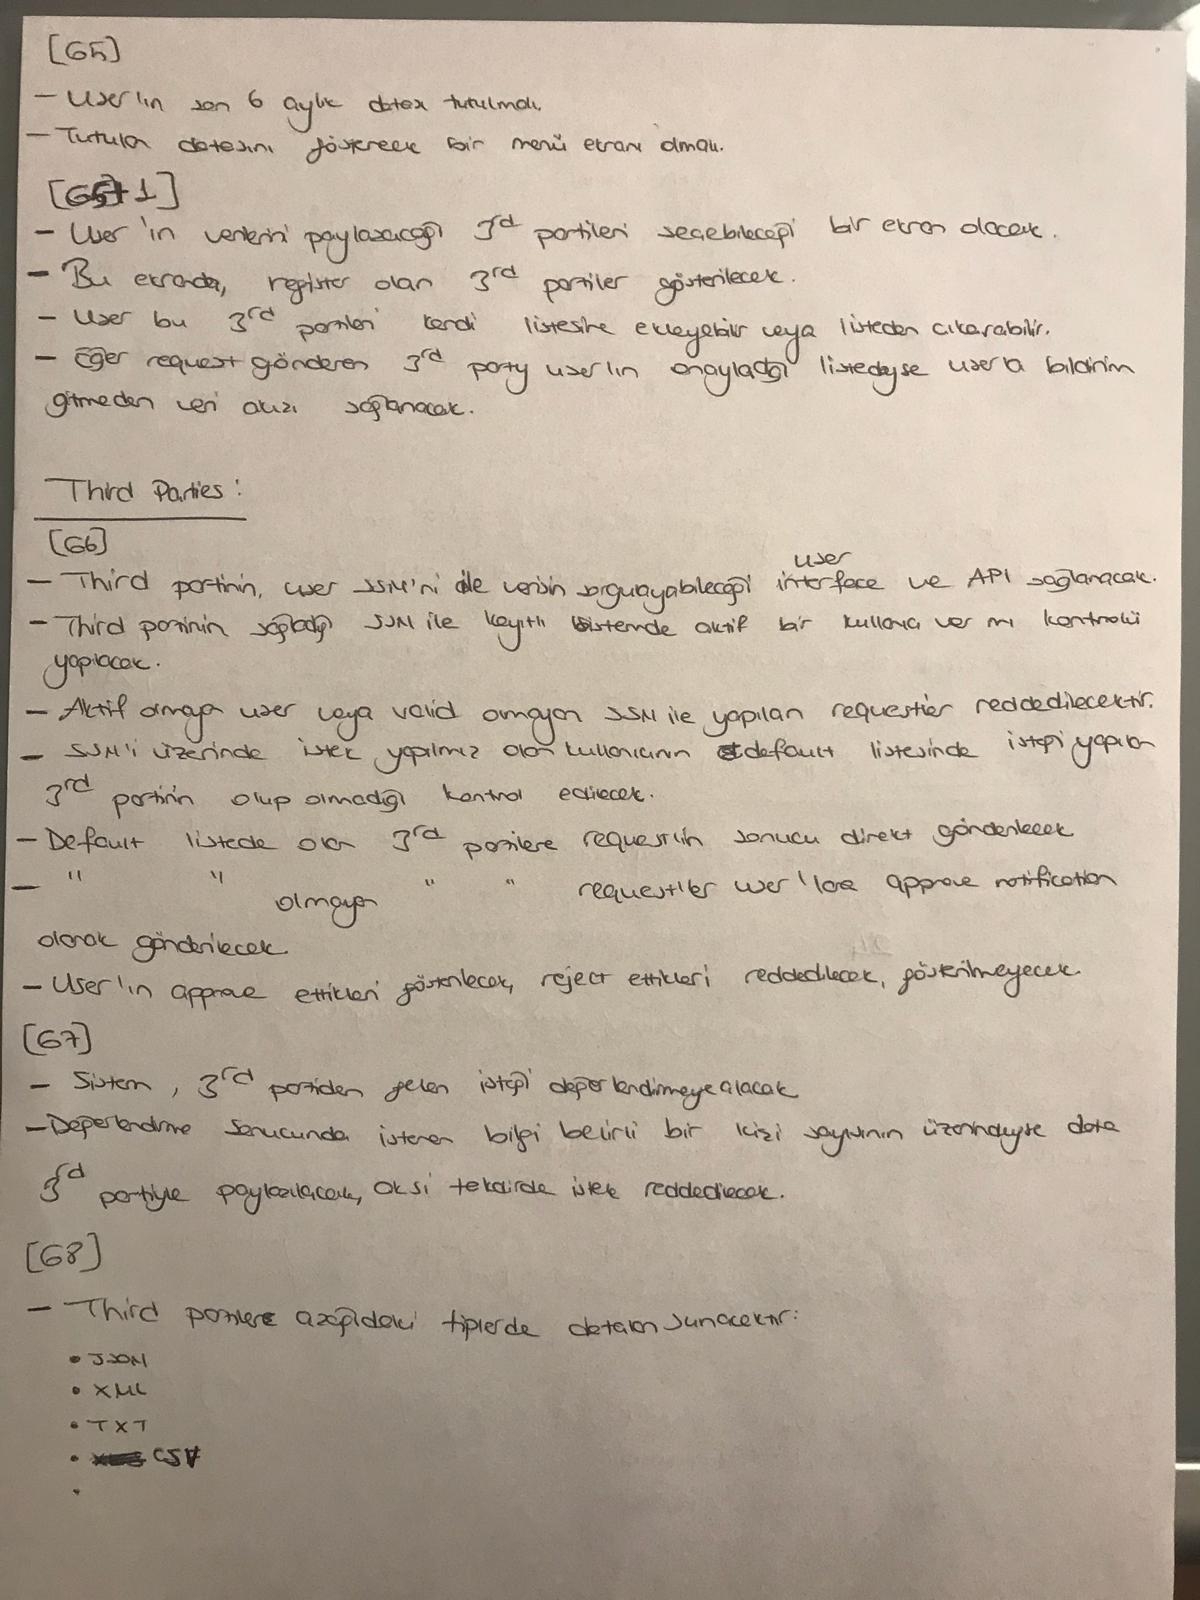 [G5]
- User'ın son 6 aylık datası tutulmalı.
- Tutulan datasını gösterecek bir menü ekranı olmalı.
[G5+1]
- User'ın verilerini paylaşacağı 3rd partileri seçebileceği bir ekran olacak.
- Bu ekranda, register olan 3rd partiler gösterilecek.
- User bu 3rd partileri kendi listesine ekleyebilir veya listeden çıkarabilir.
- Eğer request gönderen 3rd party user'ın onayladığı listedeyse user'a bildirim
gitmeden veri akışı sağlanacak.
Third Parties:
[G6]
user
- Third partinin, user SSN'ni ile verisin sorguayabileceği interface ve API sağlanacak.
- Third partinin sağladığı SSN ile kayıtlı sistemde aktif bir kullanıcı var mı kontrolü
yapılacak.
- Aktif olmayan user veya valid olmayan SSN ile yapılan requestler reddedilecektir.
- SSN'i üzerinde istek yapılmış olan kullanıcının default listesinde isteği yapılan
3rd partinin olup olmadığı kontrol edilecek.
- Default listede olan 3rd partilere request'in sonucu direkt gönderilecek
- " " olmayan " " request'ler user'lara approve notification
olarak gönderilecek.
- User'ın approve ettikleri gösterilecek, reject ettikleri reddedilecek, gösterilmeyecek.
[G7]
- Sistem, 3rd partiden gelen isteği değerlendirmeye alacak
- Değerlendirme sonucunda istenen bilgi belirli bir kişi sayısının üzerindeyse data
3rd partiyle paylaşılacak, aksi tekdirde istek reddedilecek.
[G8]
- Third partilere aşağıdaki tiplerde dataları sunacaktır:
• JSON
• XML
• TXT
• CSV
•